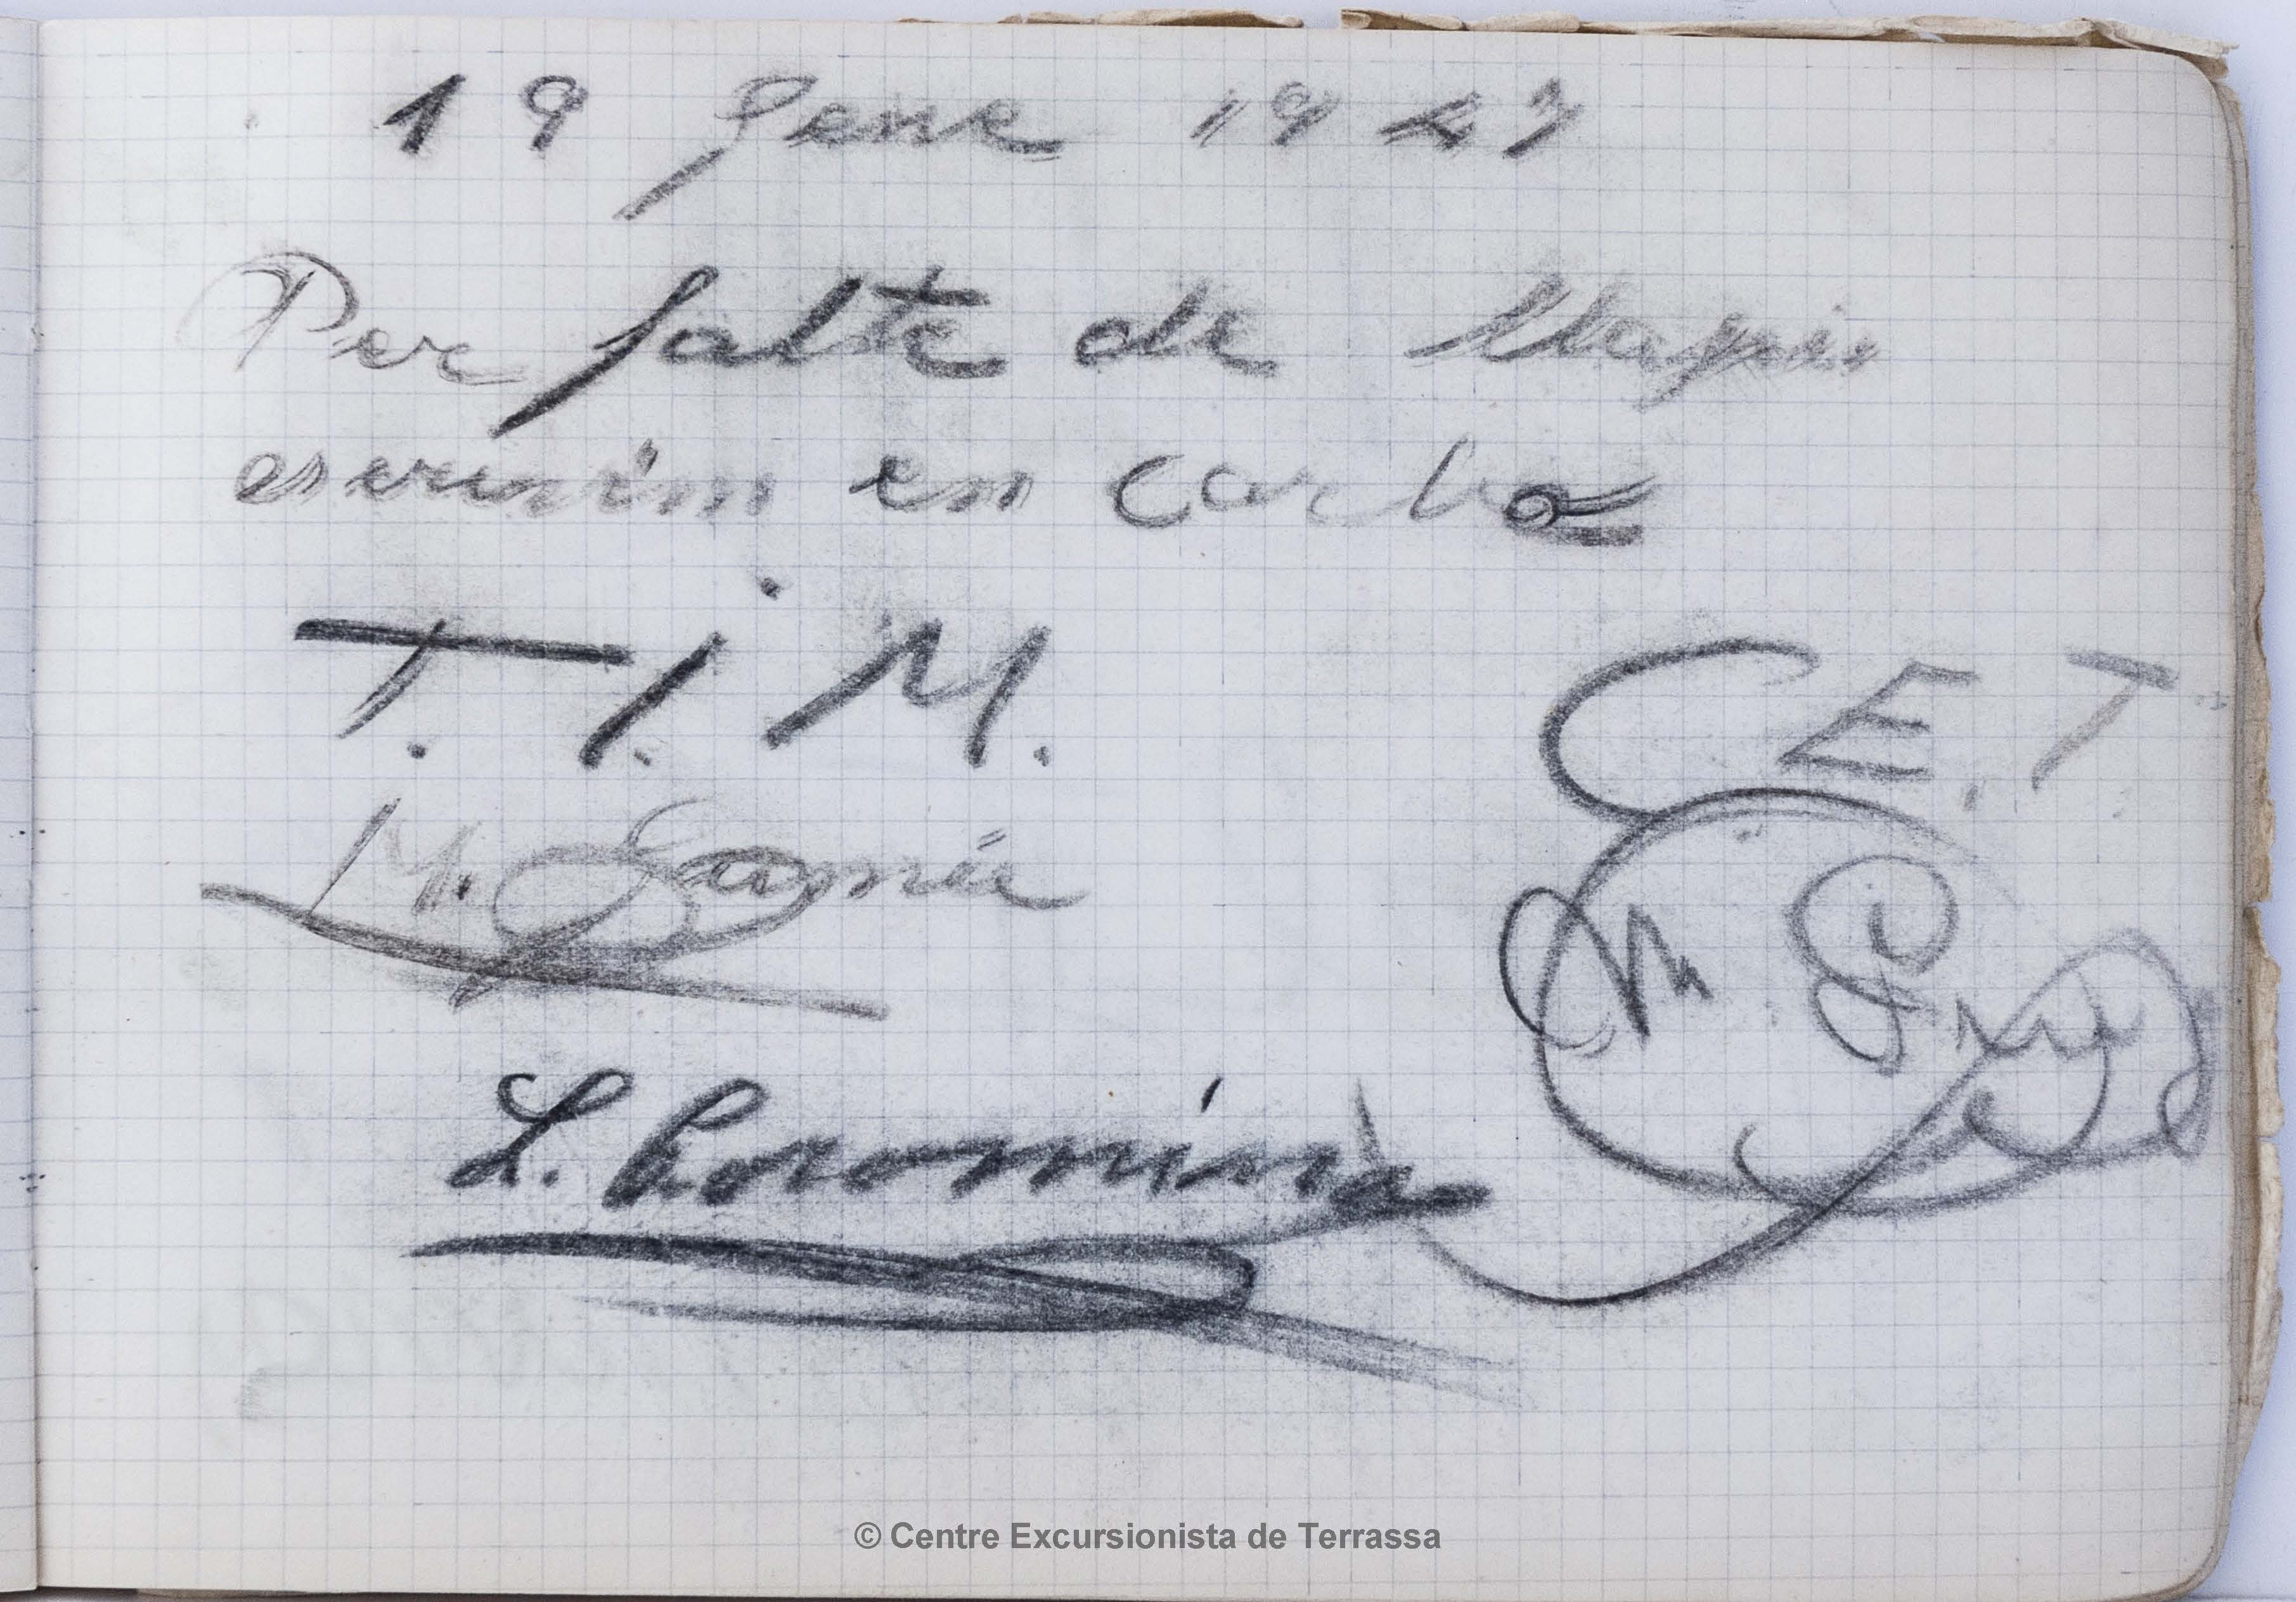 19 Gene 1927
Per falte de llapis
escrivim en carbo
T. I. M.
C E. T
M.
L. Coromina
© Centre Excursionista de Terrassa